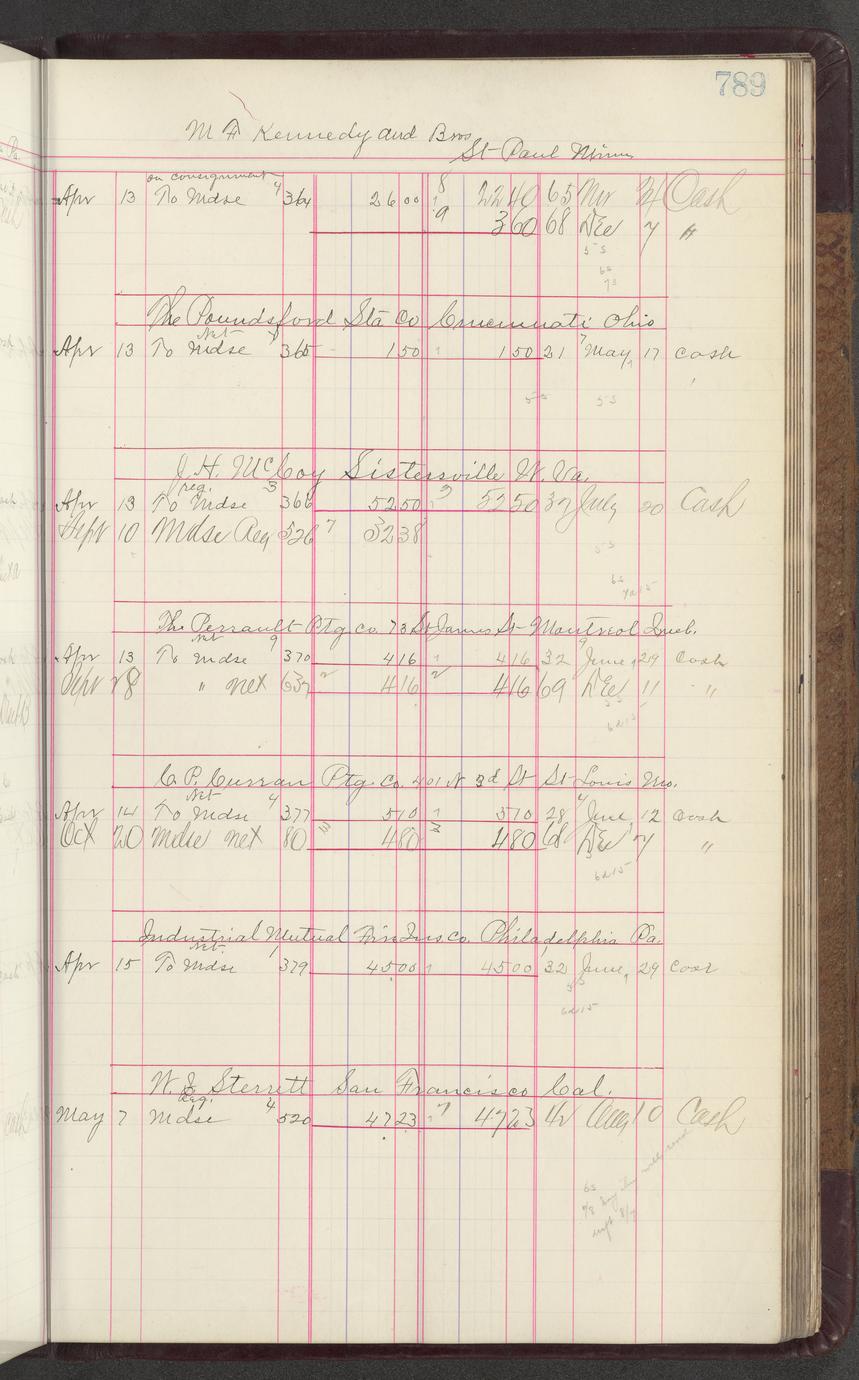 789
M F Kennedy and Bros
St-Paul Minn
on consignment
Apr 13 To Mdse 4 364 26 00 8 22 40 65 Nov 24 Cash
9 3 60 68 Dec 7 "
5 5
6s
The Poundsford Sta Co Cincinnati Ohio
Net
Apr 13 To Mdse 365 1 50 1 1 50 21 May 17 Cash
5 5 5 5
J. H. McCoy Sistersville W. Va.
reg. 3
Apr 13 To Mdse 366 52 50 3 52 50 37 July 20 Cash
Sept 10 Mdse Reg 526 7 32 38
5 5
6s
The Perrault Ptg Co. 73 St James St Montreal Queb.
Net 9
Apr 13 To Mdse 370 4 16 1 4 16 32 June 29 Cash
Sept 28 " net 637 2 4 16 2 4 16 69 Dec 11 "
6 2 15
C. P. Curran Ptg. Co. 401 N 3d St St Louis Mo.
Net
Apr 14 To Mdse 4 377 5 10 1 5 10 28 June 12 Cash
Oct 20 Mdse net 80 3 4 80 3 4 80 68 Dec 7 "
6 2 15
Industrial Mutual Fire Ins. Co. Philadelphia Pa.
Net
Apr 15 To Mdse 1 379 45 00 1 45 00 32 June 29 Cash
5 5
6 2 15
W. J. Sterrett San Francisco Cal.
Reg.
May 7 Mdse 4 520 47 23 7 47 23 42 Aug 10 Cash
6s